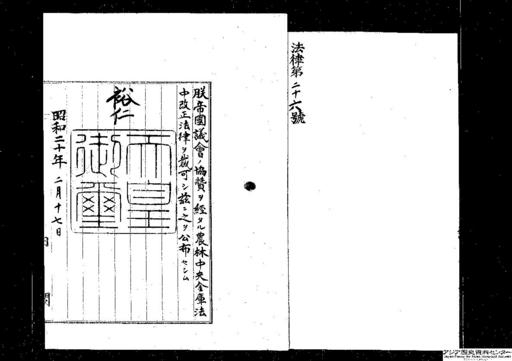 法律第二十六號
朕帝國議會ノ協贊ヲ經タル農林中央金庫法
中改正法律ヲ裁可シ茲ニ之ヲ公布セシム
裕仁
天皇
御璽
昭和二十年二月十七日
内閣
アジア歴史資料センター